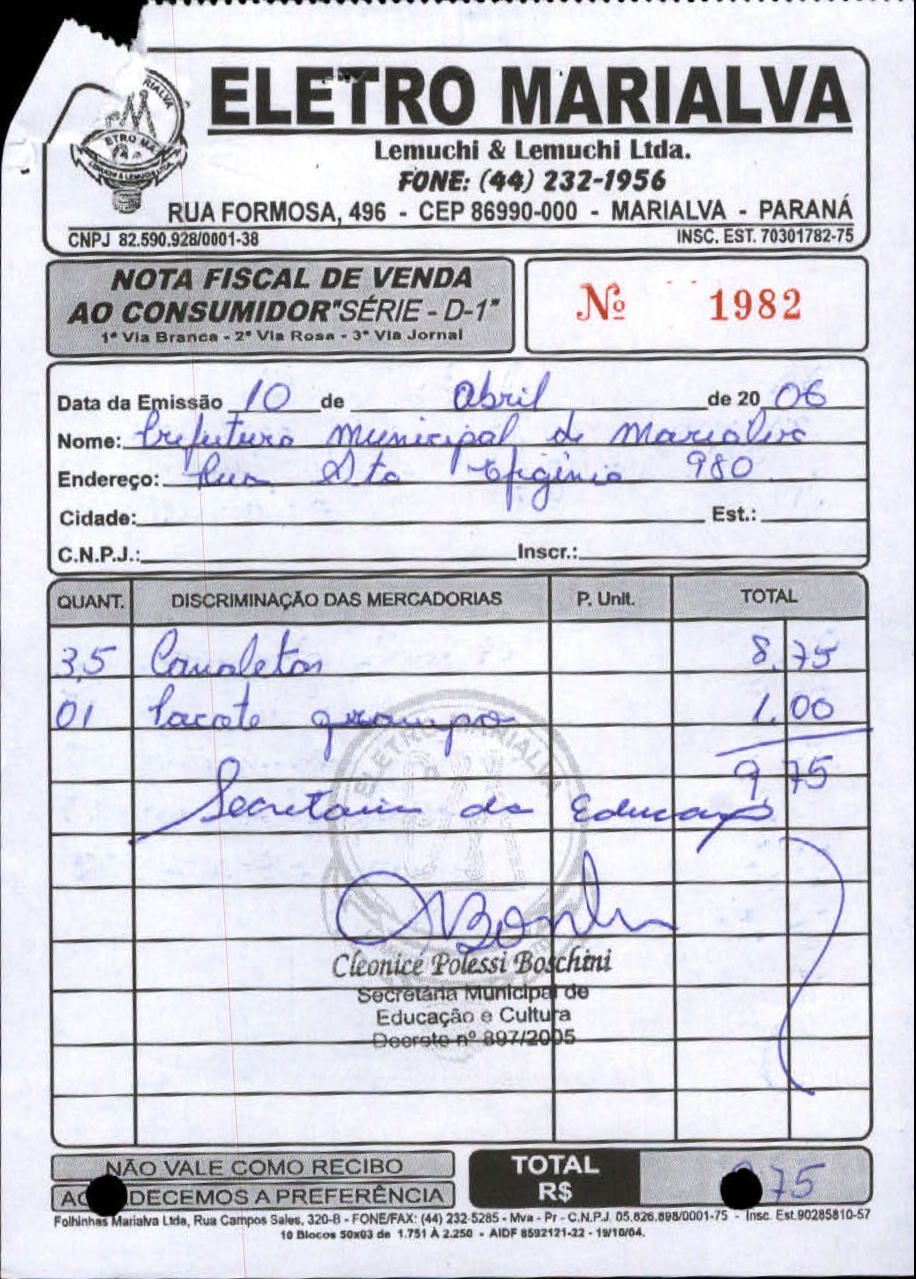 ELETRO MARIALVA
Lemuchi & Lemuchi Ltda.
FONE: (44) 232-1956
RUA FORMOSA, 496 - CEP 86990-000 - MARIALVA - PARANÁ
CNPJ 82.590.928/0001-38 INSC. EST. 70301782-75
NOTA FISCAL DE VENDA
AO CONSUMIDOR "SÉRIE - D-1"
1ª Via Branca - 2ª Via Rosa - 3ª Via Jornal
Nº 1982
Data da Emissão 10 de Abril de 20 06
Nome: Prefeitura Municipal de Marialva
Endereço: Rua Sta Efigênia 980
Cidade: Est.:
C.N.P.J.: Inscr.:
QUANT. DISCRIMINAÇÃO DAS MERCADORIAS P. Unit. TOTAL
3,5 Canaletas 8,75
01 Pacote grampo 1,00
9 75
Secretaria da Educação
ELETRO MARIALVA
Cleonice Polessi Boschini
Secretária Municipal de
Educação e Cultura
Decreto nº 897/2005
NÃO VALE COMO RECIBO
DECEMOS A PREFERÊNCIA
TOTAL
R$ 75
Folhinhas Marialva Ltda, Rua Campos Sales, 320-B - FONE/FAX: (44) 232-5285 - Mva - Pr - C.N.P.J. 05.826.898/0001-75 - Insc. Est.90285810-57
10 Blocos 50x03 de 1.751 À 2.250 - AIDF 8592121-22 - 19/10/04.